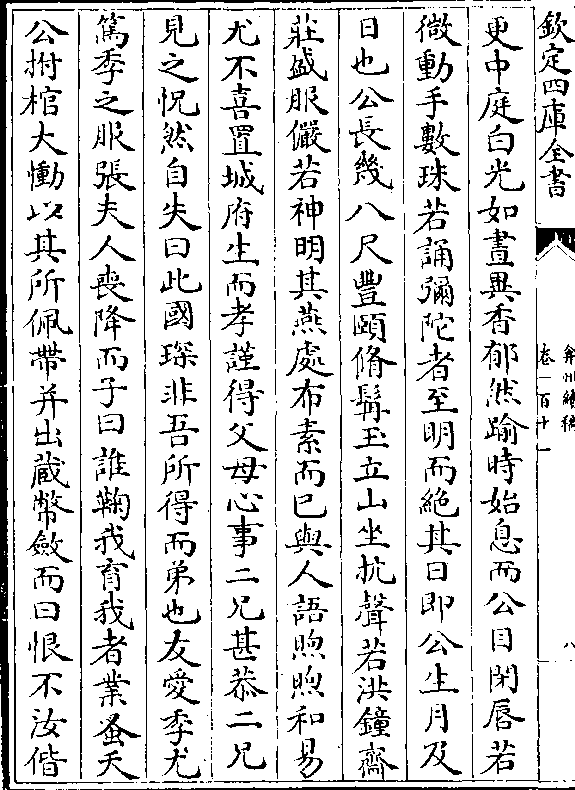 欽定四庫全書
弇州續稿
卷一百十一
八
更中庭白光如晝異香郁然踰時始息而公目閉唇若
微動手數珠若誦彌陀者至明而絶其日即公生月及
日也公長幾八尺豐頤脩髯玉立山坐抗聲若洪鐘齋
莊盛服儼若神明其燕處布素而已與人語煦煦和易
尤不喜置城府生而孝謹得父母心事二兄甚恭二兄
見之怳然自失曰此國琛非吾所得而弟也友愛季尤
篤季之服張夫人喪降而子曰誰鞠我育我者業蚤夭
公拊棺大慟以其所佩帶并出藏幣斂而曰恨不汝偕